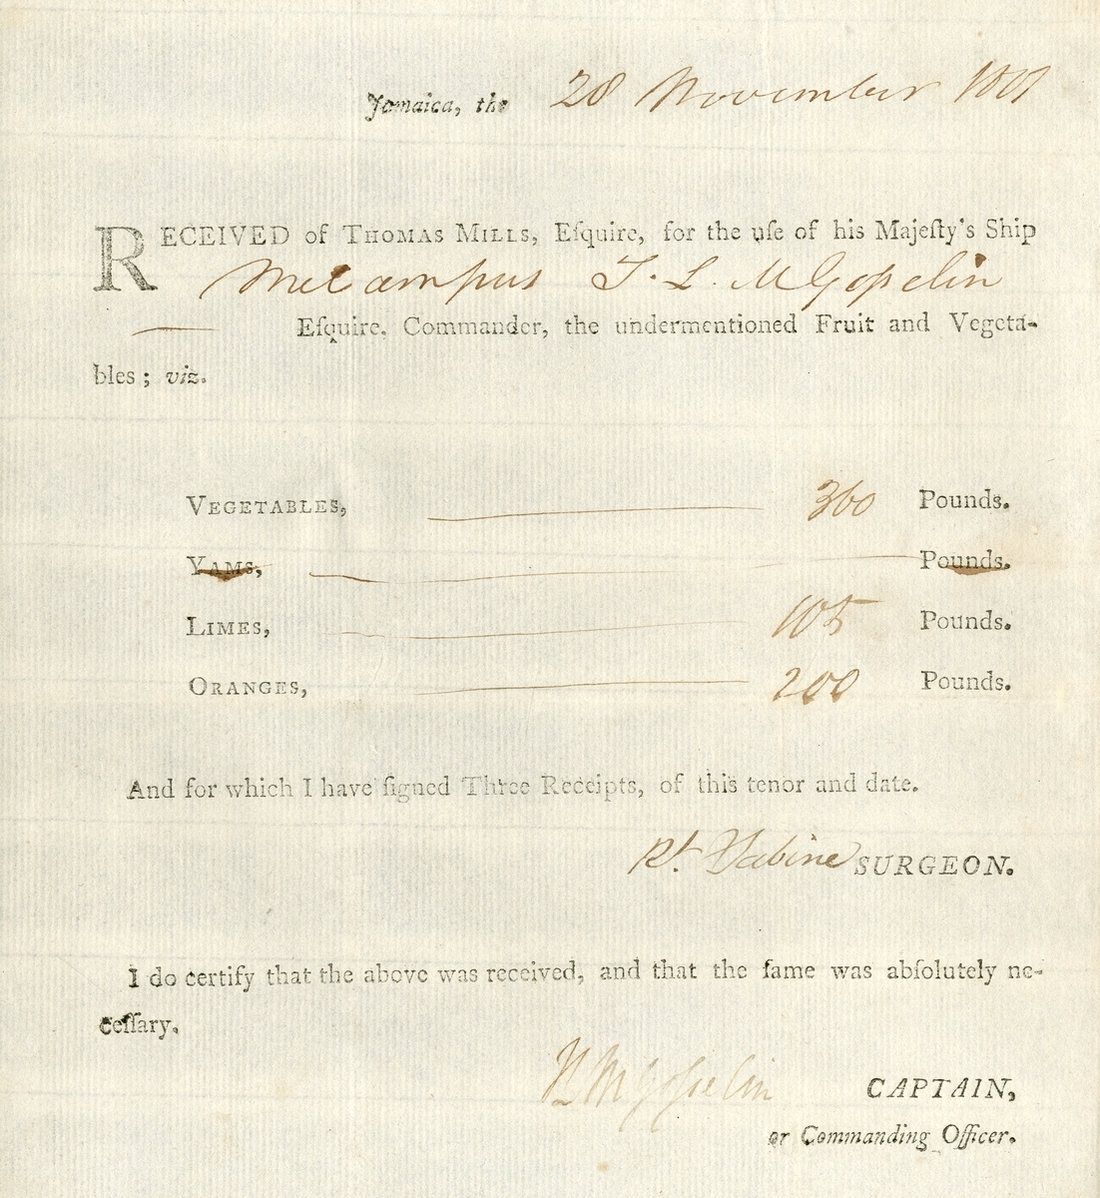 Jamaica, the 28 November 1801
RECEIVED of THOMAS MILLS, Eſquire, for the uſe of his Majeſty's Ship
Melampus T. L. M Goſselin
Eſquire, Commander, the undermentioned Fruit and Vegeta-
bles ; viz.
VEGETABLES, 360 Pounds.
YAMS, Pounds.
LIMES, 105 Pounds.
ORANGES, 200 Pounds.
And for which I have ſigned Three Receipts, of this tenor and date.
Rt. Sabine SURGEON.
I do certify that the above was received, and that the ſame was abſolutely ne-
ceſſary.
Goſselin CAPTAIN,
or Commanding Officer.